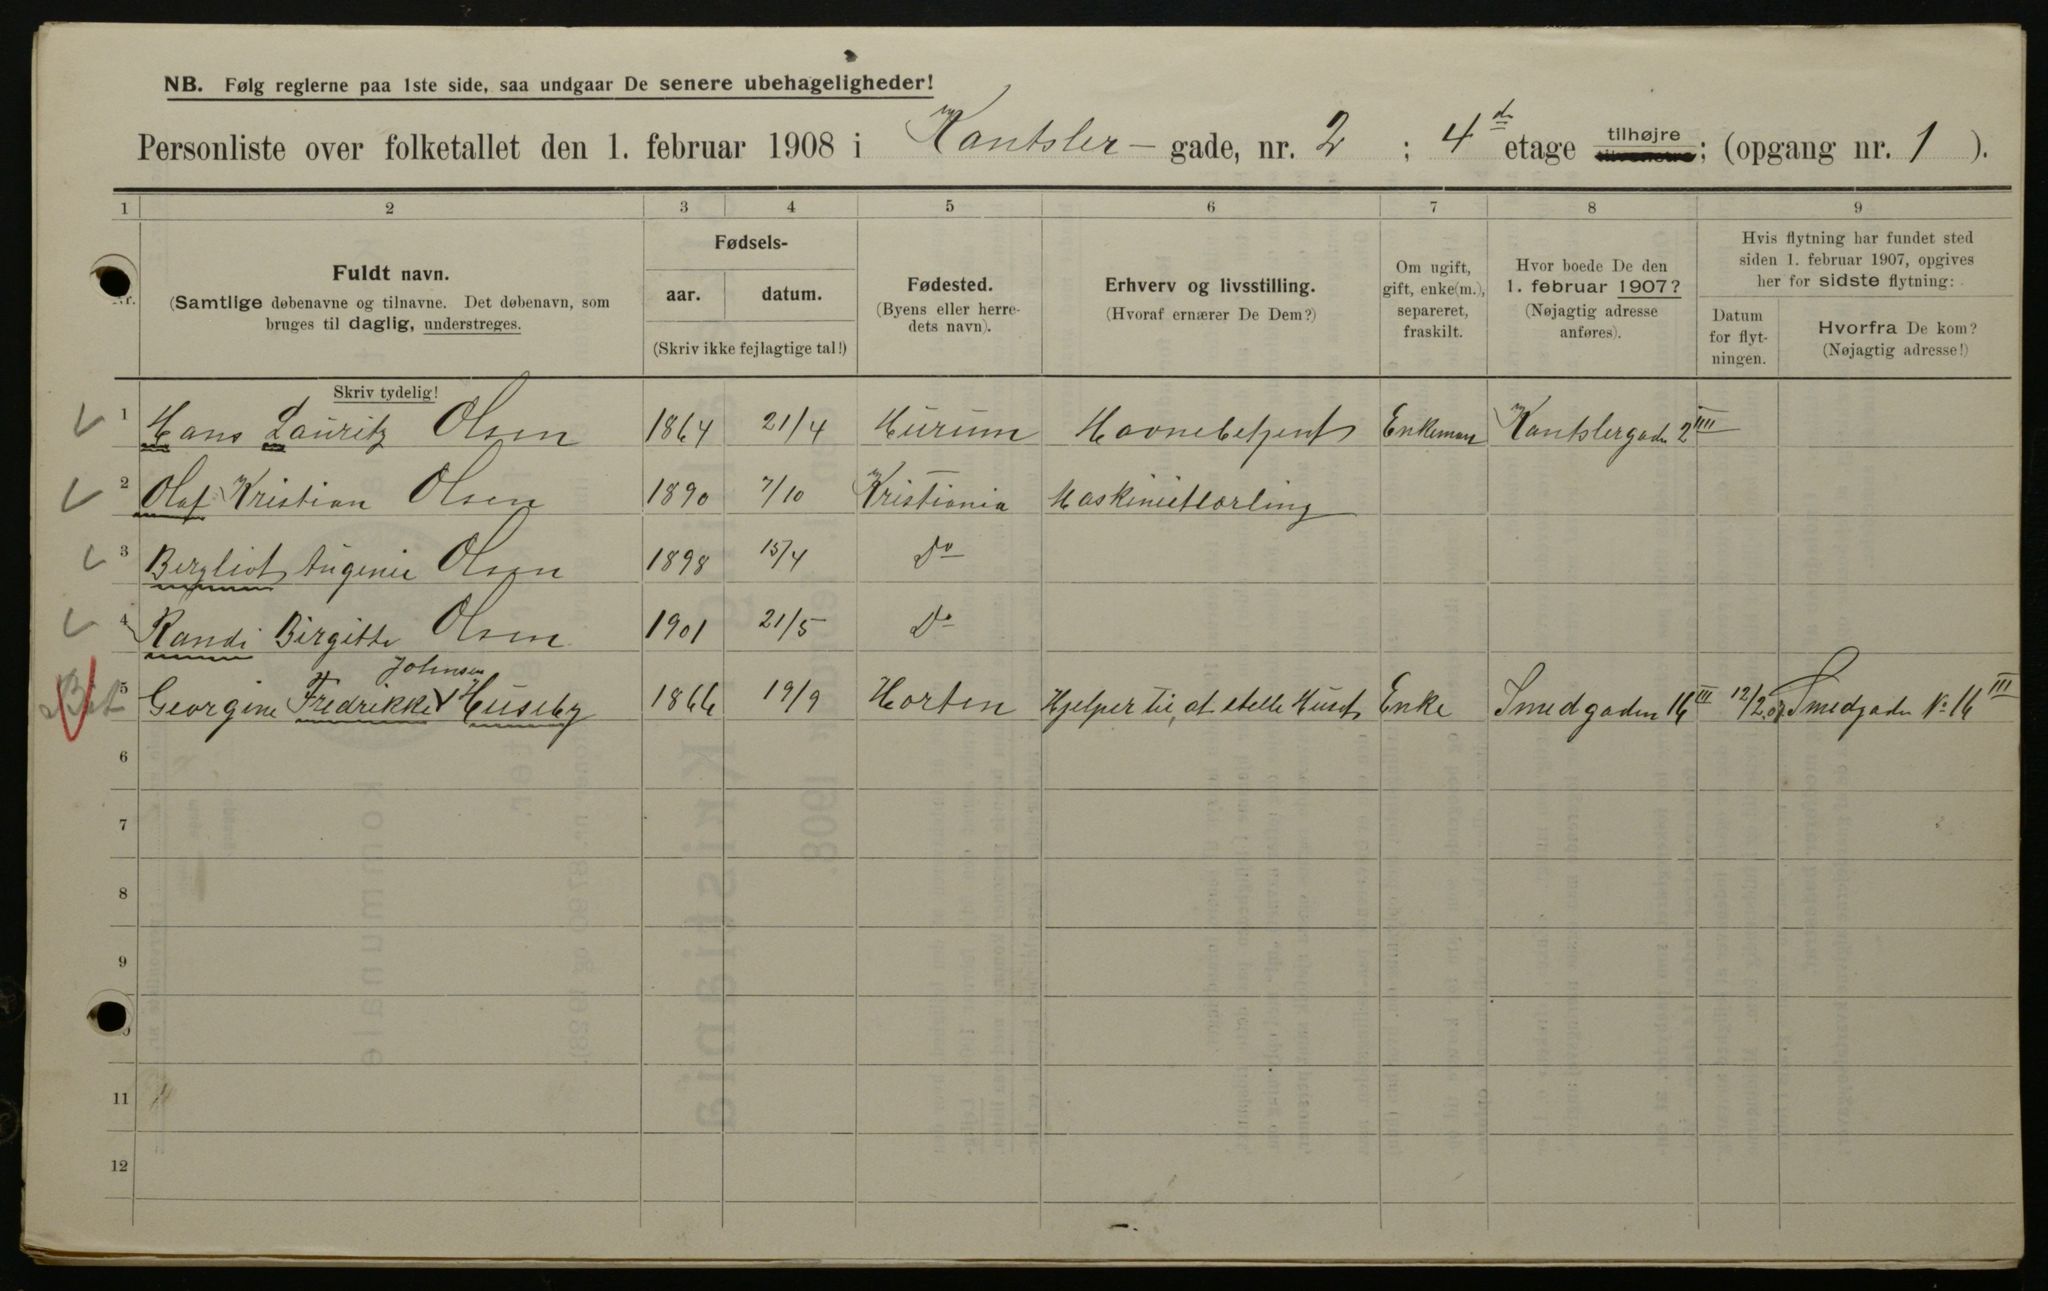 NB. Følg reglerne paa 1ste side, saa undgaar De senere ubehageligheder!
Personliste over folketallet den 1. februar 1908 i Kantsler - gade, nr. 2 ; 4de etage tilhøjre tilvenstre; (opgang nr. 1 ).
1 2 3 4 5 6 7 8 9
Nr.
Fuldt navn.
(Samtlige døbenavne og tilnavne. Det døbenavn, som
bruges til daglig, understreges.
Fødsels-
aar. datum.
(Skriv ikke fejlagtige tal!)
Fødested.
(Byens eller herre-
dets navn).
Erhverv og livsstilling.
(Hvoraf ernærer De Dem?)
Om ugift,
gift, enke(m.),
separeret,
fraskilt.
Hvor boede De den
1. februar 1907?
(Nøjagtig adresse
anføres).
Hvis flytning har fundet sted
siden 1. februar 1907, opgives
her for sidste flytning:
Datum
for flyt-
ningen.
Hvorfra De kom?
(Nøjagtig adresse!)
Skriv tydelig!
1 Hans Lauritz Olsen 1864 21/4 Hurum Havnebetjent Enkeman Kantslergade 2 IIII
2 Olaf Kristian Olsen 1890 7/10 Kristiania Maskinistlærling
3 Bergliot Augenie Olsen 1898 15/4 Do
4 Randi Birgitte Olsen 1901 21/5 Do
Johnsen
5 Georgine Fredrikke Huseby 1866 19/9 Horten Hjelper til at stelle Huset Enke Smedgaden 16 III 12/2.07 Smedgaden No 16 III
6
7
8
9
11
12